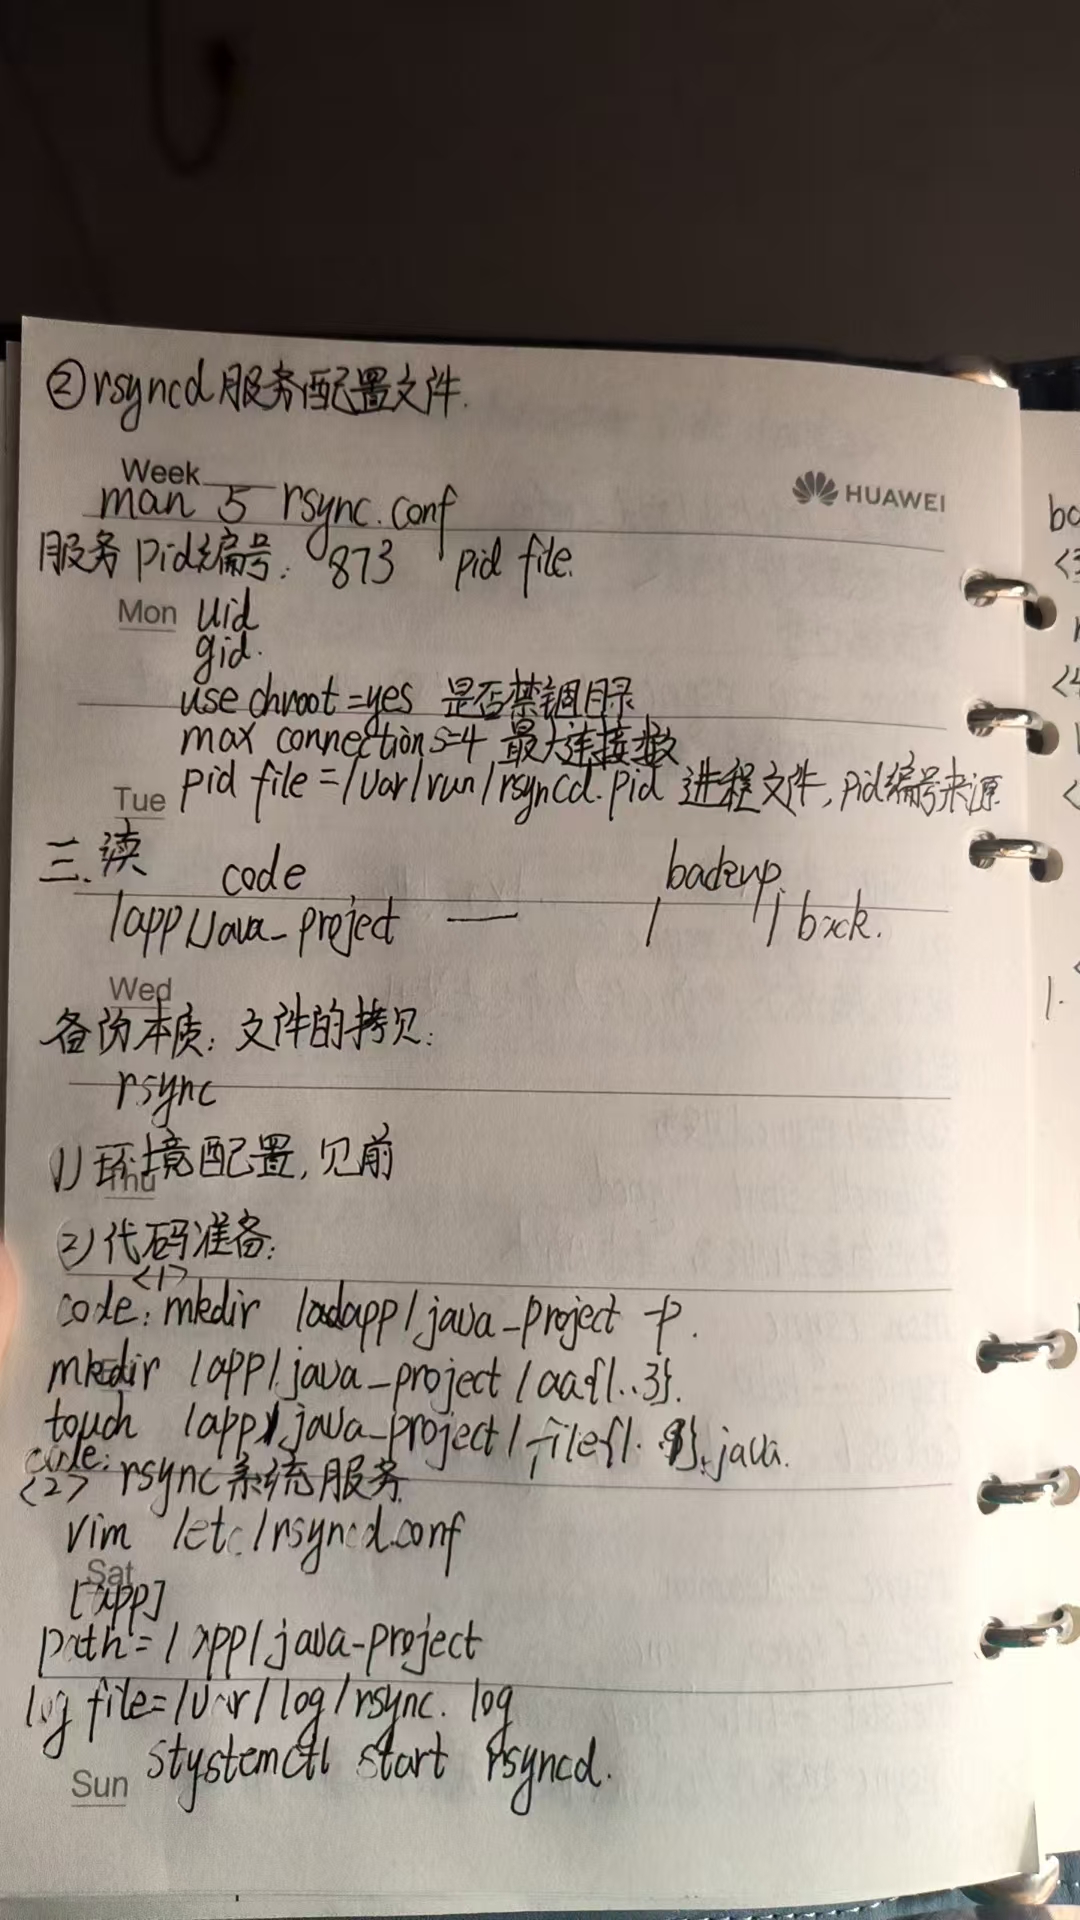 ②rsyncd服务配置文件.
Week
HUAWEI
man 5 rsync.conf
服务pid编号: 873 pid file.
Mon
uid
gid.
use chroot=yes 是否禁锢目录
max connections=4 最大连接数
Tue
pid file=/var/run/rsyncd.pid 进程文件, pid编号来源
三.读
code backup.
/app/java_project — / /back.
Wed
备份本质: 文件的拷贝:
rsync
1) 环境配置, 见前
Thu
2) 代码准备:
<1>
code: mkdir /adapp/java_project -p.
mkdir /app/java_project/aa{1..3}.
touch /app/java_project/file{1..9}.java.
code:
<2> rsync系统服务
vim /etc/rsyncd.conf
Sat
[app]
path=/app/java-project
log file=/var/log/rsync.log
stystemctl start rsyncd.
Sun